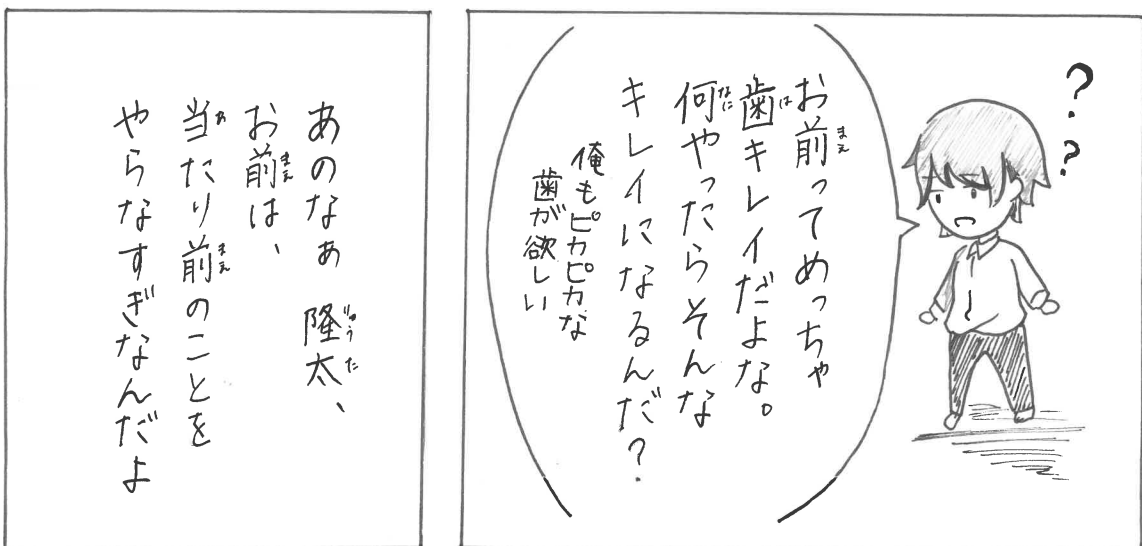 ??
お前ってめっちゃ
歯キレイだよな。
何やったらそんな
キレイになるんだ?
俺もピカピカな
歯が欲しい
あのなぁ 隆太、
お前は、
当たり前のことを
やらなすぎなんだよ